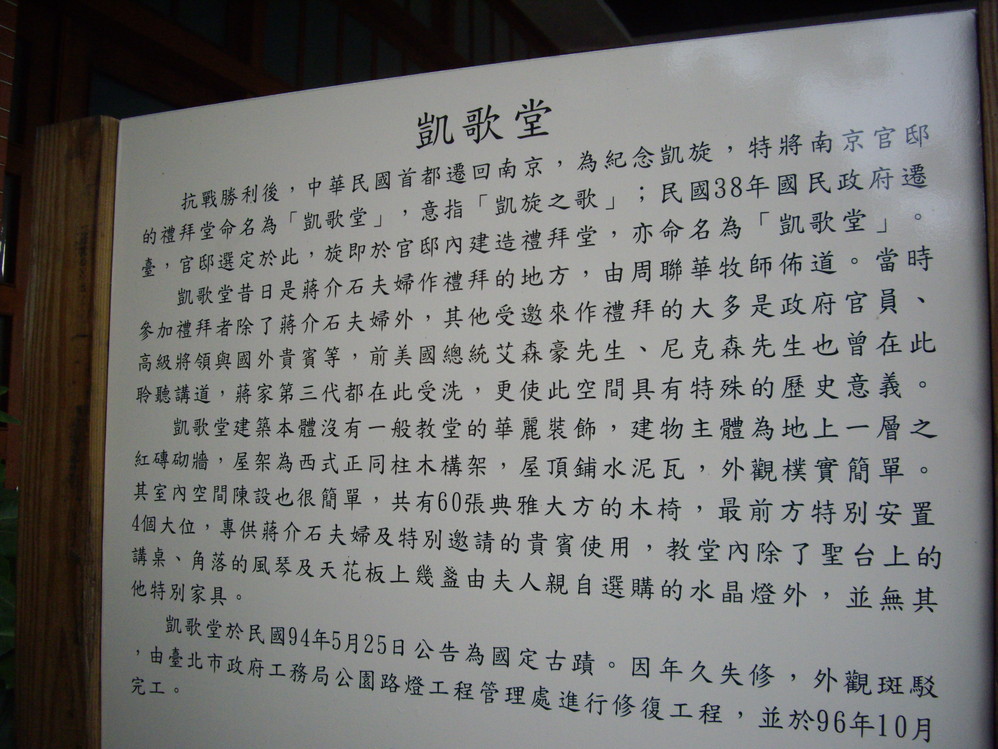 凱歌堂
抗戰勝利後，中華民國首都遷回南京，為紀念凱旋，特將南京官邸
的禮拜堂命名為「凱歌堂」，意指「凱旋之歌」；民國38年國民政府遷
臺，官邸選定於此，旋即於官邸內建造禮拜堂，亦命名為「凱歌堂」。
凱歌堂昔日是蔣介石夫婦作禮拜的地方，由周聯華牧師佈道。當時
參加禮拜者除了蔣介石夫婦外，其他受邀來作禮拜的大多是政府官員、
高級將領與國外貴賓等，前美國總統艾森豪先生、尼克森先生也曾在此
聆聽講道，蔣家第三代都在此受洗，更使此空間具有特殊的歷史意義。
凱歌堂建築本體沒有一般教堂的華麗裝飾，建物主體為地上一層之
紅磚砌牆，屋架為西式正同柱木構架，屋頂鋪水泥瓦，外觀樸實簡單。
其室內空間陳設也很簡單，共有60張典雅大方的木椅，最前方特別安置
4個大位，專供蔣介石夫婦及特別邀請的貴賓使用，教堂內除了聖台上的
講桌、角落的風琴及天花板上幾盞由夫人親自選購的水晶燈外，並無其
他特別家具。
凱歌堂於民國94年5月25日公告為國定古蹟。因年久失修，外觀斑駁
，由臺北市政府工務局公園路燈工程管理處進行修復工程，並於96年10月
完工。